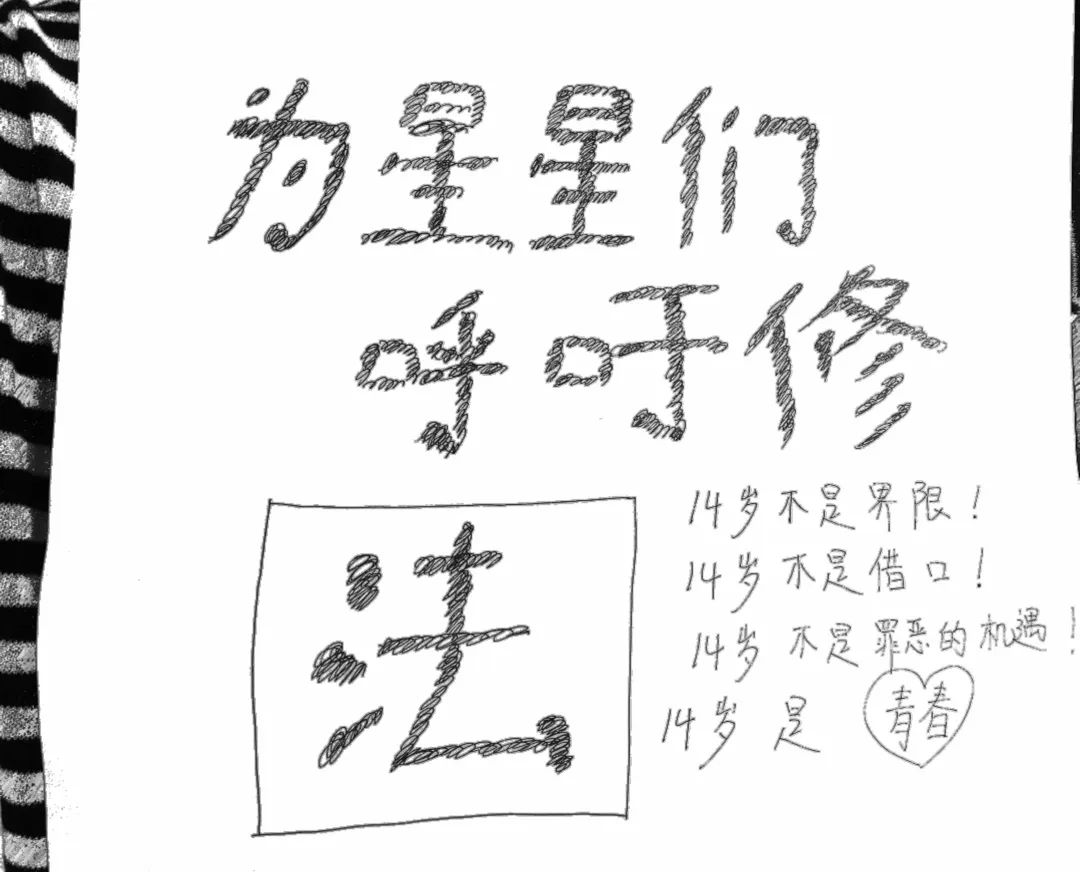 为星星们
呼吁修
法
14岁不是界限!
14岁不是借口!
14岁不是罪恶的机遇!
14岁是青春